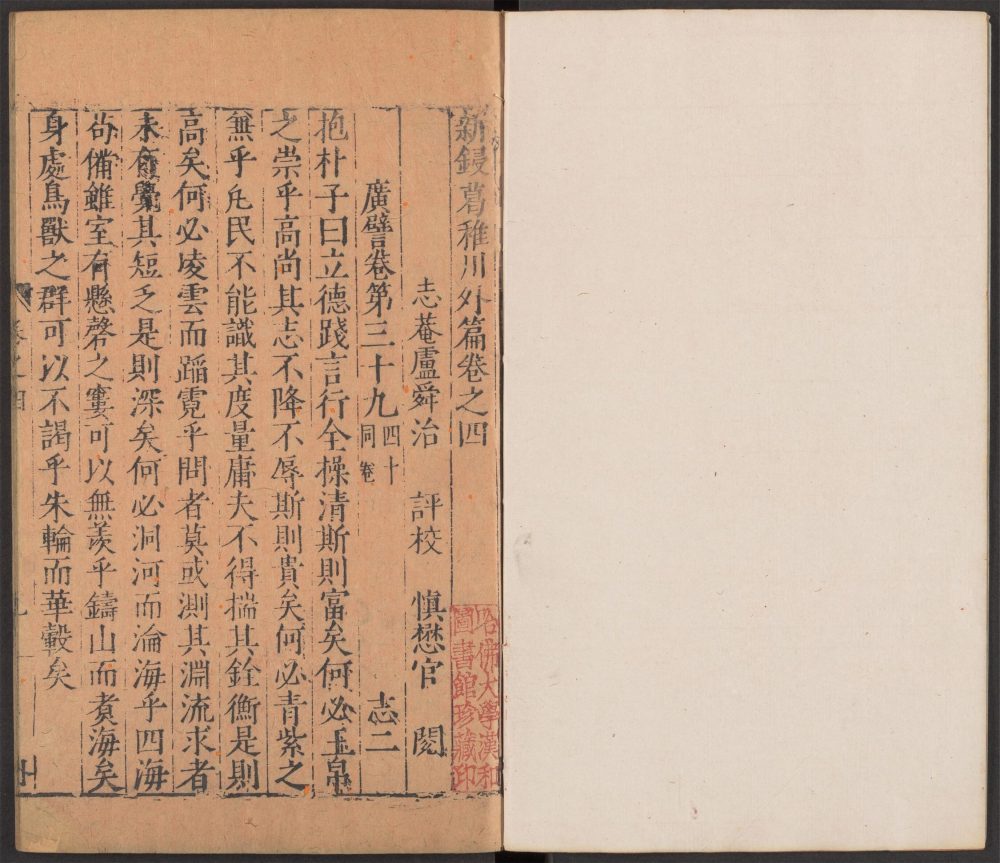 新鋟葛稚川外篇卷之四
志菴盧舜治 評校 慎懋官 閱
廣譬卷第三十九 四十同卷 志二
抱朴子曰立德踐言行全操清斯則富矣何必玉帛
之崇乎高尚其志不降不辱斯則貴矣何必青紫之
無乎凡民不能識其度量庸夫不得揣其銓衡是則
高矣何必凌雲而蹈霓乎問者莫或測其淵流求者
未有覺其短乏是則深矣何必洞河而淪海乎四海
苟備雖室有懸磬之窶可以無羨乎鑄山而煮海矣
身處鳥獸之群可以不謁乎朱輪而華轂矣
卷之四
哈佛大學漢和
圖書館珍藏印